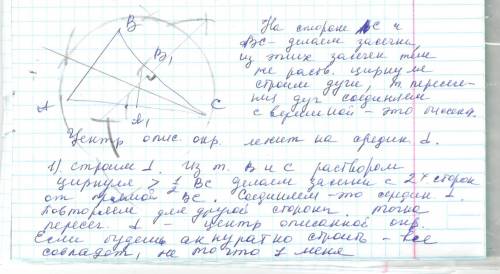 B
На стороне AC и
BC - делаем засечки
B₁
из этих засечек тем
же раств. циркуля
строим дуги, т. пересече-
A
A₁
C
ния дуг соединяем
с вершиной - это биссек.
Центр опис. окр. лежит на средин. ⊥.
1) строим ⊥. Из т. B и C раствором
циркуля > 1/2 BC делаем засечки с 2х сторон
от прямой BC. Соединяем - это средин. ⊥.
Повторяем для другой стороны. Точка
пересеч. ⊥ - центр описанной окр.
Если будешь аккуратно строить - все
совпадёт, не то что у меня